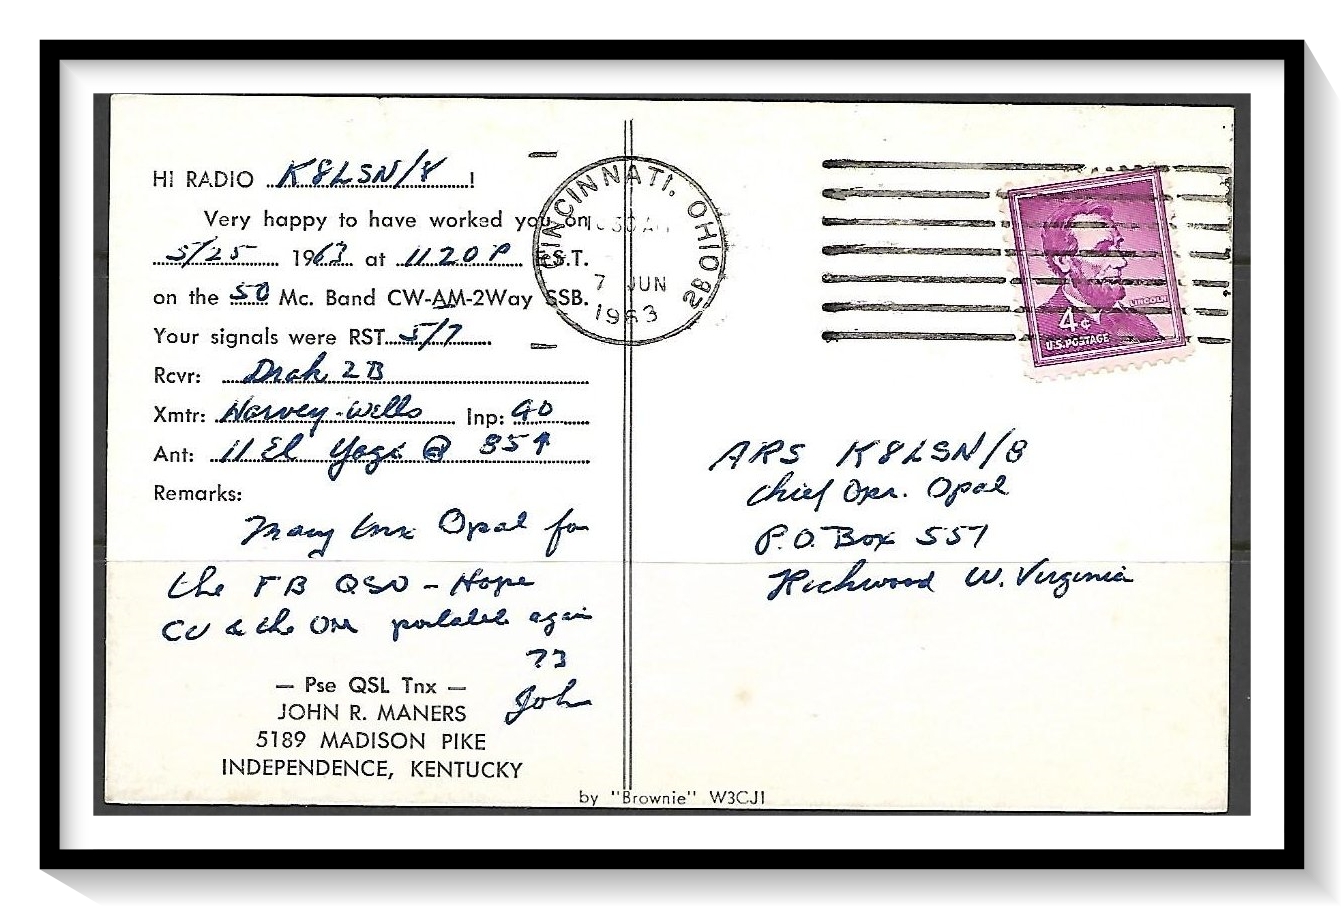 HI RADIO K8LSN/8 !
Very happy to have worked you on
5/25 1963 at 1120 P E.S.T.
on the 50 Mc. Band CW-AM-2Way SSB.
Your signals were RST 5/7
Rcvr: Drake 2B
Xmtr: Harvey-Wells Inp: 90
Ant: 11 El Yagi @ 85'
Remarks:
Many tnx Opal for
the FB QSO - Hope
CU & the OM portable again
73
John
— Pse QSL Tnx —
JOHN R. MANERS
5189 MADISON PIKE
INDEPENDENCE, KENTUCKY
by "Brownie" W3CJI
CINCINNATI, OHIO 2
30 AM
7 JUN
1963
LINCOLN
4¢
U.S. POSTAGE
ARS K8LSN/8
Chief Opr. Opal
P.O. Box 557
Richwood W. Virginia